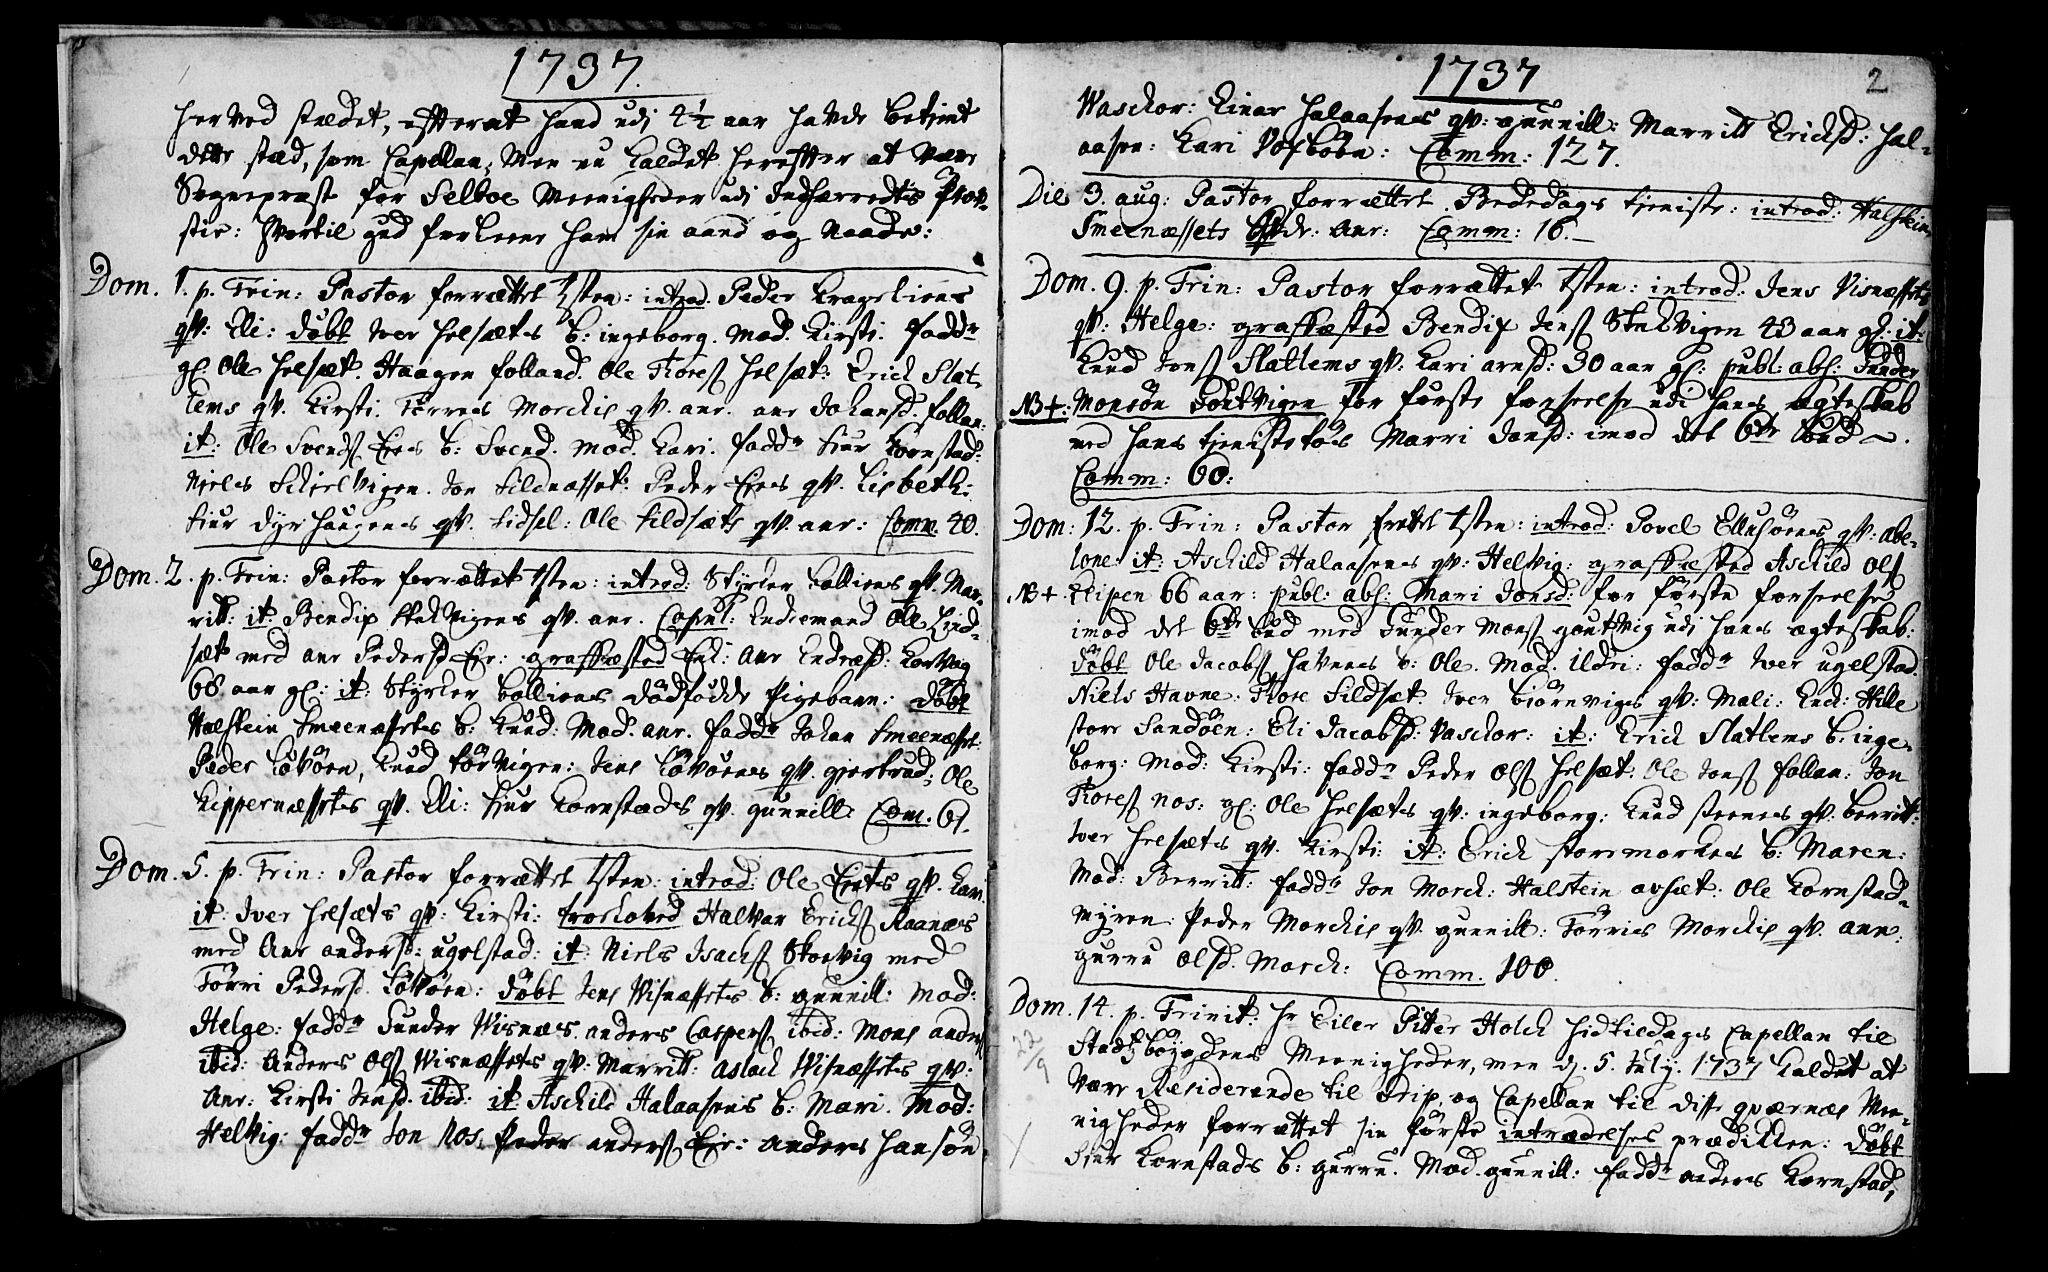 1737.
her ved stædet, efterat hand udi 4½ aar havde betient
dette stæd, som Capellan, Men nu kaldet herefter at være
Sognepræst for Selboe Menigheder udi Indherredts Prov-
stie: Hvortil gud forleene ham sin aand og Naade:
Dom. 1. p. Trin: Pastor forrættet Tsten: introd. Peder Krageliens
qv: Eli: døbt Iver Helsæts b: ingeborg. Mod. Kirsti. fadd:
gl. Ole Helsæt. Haagen folland. Ole Toreß Helsæt: Erich Slat-
lems qv. Kirsti. Tørres Morchis qv. anr. anr Johansd. follan:
it: Ole Svendß Eies b: Svend. Mod. Kari. fadd: Siur Kornstad:
Niels Schielvigen. Jon Sildnæsset: Peder Eies qv. Lisbeth:
Siur dyrhaugens qv. Sidsel: Ole Sildsæts qv. anr: Comm. 40.
Dom. 2. p. Trin: Pastor forrættet Tsten: introd: Styrker bolliens qv. Mar-
rit: it: Bendix Stelvigens qv. anr. Copul: Enchemand Ole Lind-
sæt med anr Pedersd Eie: græskæsted Enk: Anr Endresd: Korvog
68 aar gl: it: Styrker bolliens dødfødde Pigebarn: døbt
Halstein Smeenæssets b: Knud: Mod. anr. fadd: Johan Smeenæsset:
Peder Løvøen, Knud Sørvigen: Jens Løvøens qv. giertrud; Ole
Kippernæssets qv. Eli: Siur Kornstads qv. gunnill: Com. 61.
Dom. 5. p. Trin: Pastor forrættet Tsten: introd: Ole Eiets qv. Kari.
it: Iver Helsæts qv: Kirsti: troeloved Halvar Erichß Staanæs
med Anr andersd: ugelstad: it: Niels Isachß Skorvig med
Tørri Pedersd. Løvøen: døbt Jens Visnæssets b: gunnill: Mod:
Helge: fadd: Gunder Visnæs. anders Casperß ibid: Mons anderß
ibid: Anders Olß Visnæssets qv: Marrit: aslach Visnæssets qv:
Anr: Kirsti Jensd. ibid: it: Aschild Halaasens b: Mari. Mod:
Helvig: fadd: Jon Nos. Peder anderß Eie: anders Hansøn
1737
2
Waschor: Einar Halaasens qv: gunnill: Marritt Erichsd: Hal-
aasen: Kari Vosbøen: Comm: 127.
Die 3. aug: Pastor forrættet Bededags tieniste: introd: Halstein
Smeenæssets qvde: Anr: Comm: 16.
Dom. 9. p. Trin: Pastor forrættet Tsten: introd: Jens Visnæssets
qv: Helge: græskæsted Bendix Jenß Stelvigen 43 aar gl: it:
Knud Jonß Slatlems qv. Kari arnsd: 30 aar gl: publ: abs: Gunder
NB+: Monsøn Goutvigen for første forseelse udi hans ægteskab
med hans tienistetøs Marri Jonsd: imod det 6te bud.
Comm: 60:
Dom: 12. p. Trin: Pastor frettet Tsten: introd: Povel Ellusøens qv: abe-
lone: it: Aschild Halaasens qv: Helvig: græskæsted Aschild Olß
NB+ Klipen 66 aar: publ: abs: Mari Jonsd: for første forseelse
imod det 6te bud med Gunder Monß goutvig udi hans ægteskab:
døbt Ole Jacobß Havnes b: Ole. Mod. Ildri: fadd: Iver ugelstad.
Niels Havne: Tore Sildsæt. Iver biørnviges qv: Mali: Enk: Hille
store Sandøen: Eli Jacobsd: Vaschor: it: Erich Slatlems b: inge-
borg: Mod: Kirsti: fadd: Peder Olß Helsæt: Ole Jonß follan: Jon
Toreß nos: gl: Ole Helsæts qv: ingeborg: Knud steenes qv: berrit:
Iver Helsæts qv. Kirsti: it: Erich storemorkes b: Maren:
Mod: Berritt: fadd: Jon Morch: Halstein avsæt: Ole Kornstad-
myren: Peder Morchis qv. gunnill: Tørries Morchis qv. ann:
gurru Olsd. Morch: Comm: 100.
Dom. 14. p. Trinit: Hr Eiler Pitter Holch hidtildags Capellan til
22/9
Stadsbøygdens Meenigheder, men d. 5. July. 1737 kaldet at
være Residerende til Grip, og Capellan til disse qværnæs Mee-
nigheder forrættet sin første intrædelses prædikken: døbt
Siur Kornstads b: gurru. Mod. gunnill: fadd: anders Kornstad,